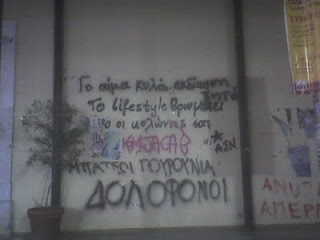 Το αίμα κυλά, εκδίκηση
ζητά
Το Lifestyle Βρωμάει
οι κολώνες σας
ACAB
ΜΠΑΤΣΟΙ ΓΟΥΡΟΥΝΙΑ
ΔΟΛΟΦΟΝΟΙ
ΑΝΥΠ
ΑΠΕΡΓ